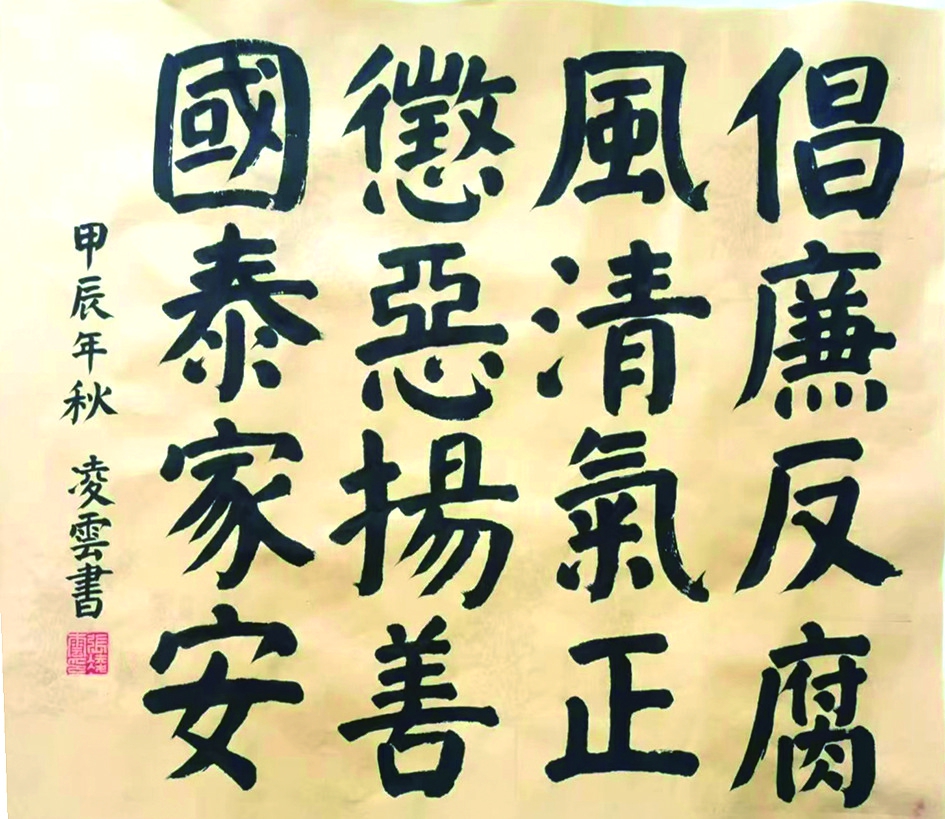 倡廉反腐
風清氣正
懲惡揚善
國泰家安
甲辰年秋 凌雲書